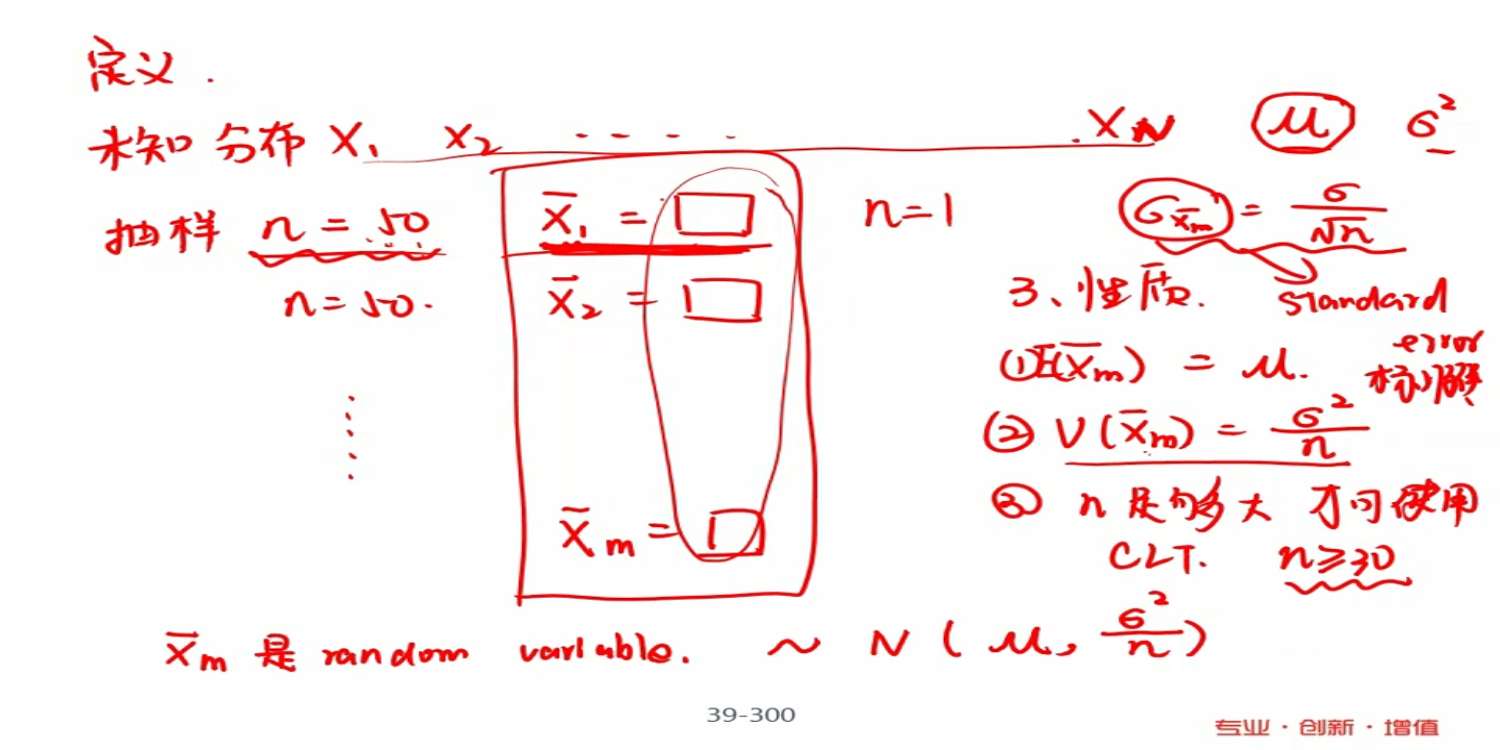 定义.
未知分布 X₁ X₂ ---- .X_N μ σ²
抽样 n = 50 X̄₁ = □ n=1 σ_X̄m = σ/√n
n=50. X̄₂ = □ 3、性质. standard error
① E(X̄m) = μ. 标准误
② V(X̄m) = σ²/n
③ n 足够大 才可使用
X̄m = □ CLT. n≥30
X̄m 是 random variable. ~ N(μ, σ²/n)
39-300
专业·创新·增值